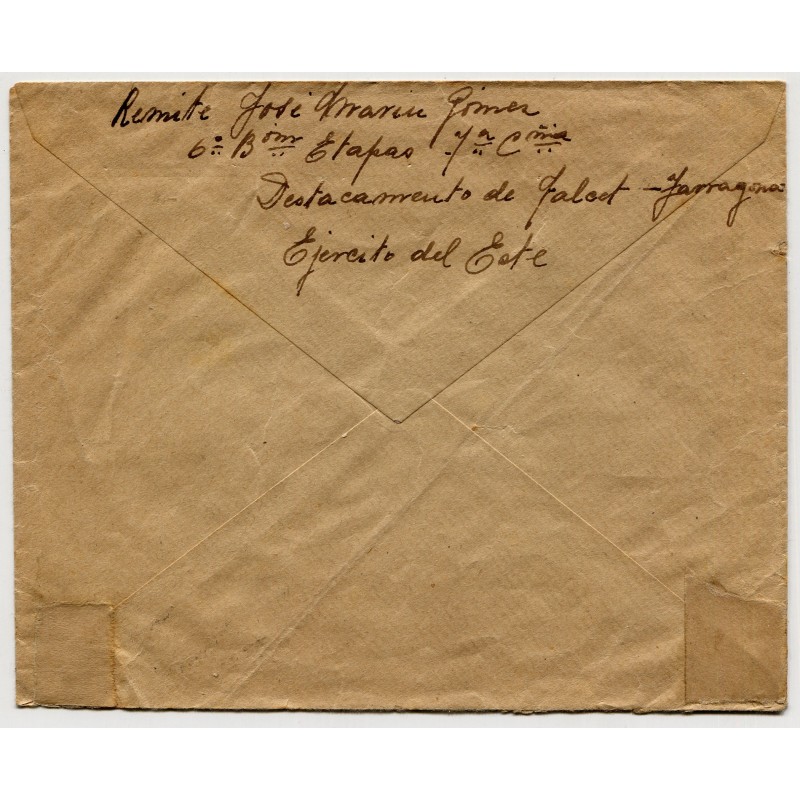 Remite José Marin Gómez
6º Bón Etapas 7ª Cñia
Destacamento de Falcet - Tarragona
Ejercito del Este